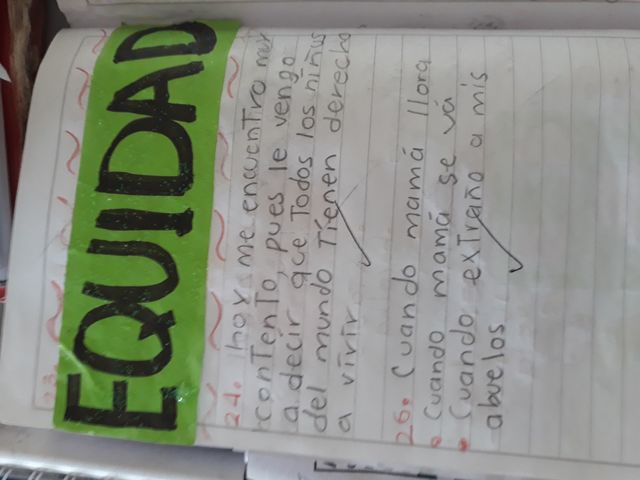 23.
EQUIDAD
24. hoy me encuentro muy
contento, pues le vengo
a decir que Todos los niñus
del mundo Tienen derecho
a vivir
26. Cuando mamá llora
• Cuando mamá se vá
• Cuando extraño a mis
abuelos